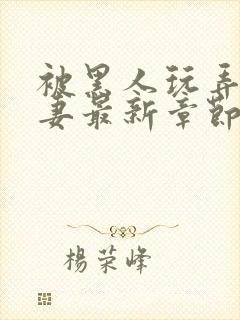 被黑人玩弄
妻最新章節
楊荣峰